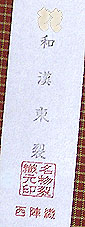 和漢東裂
名物裂
織元印
西陣織